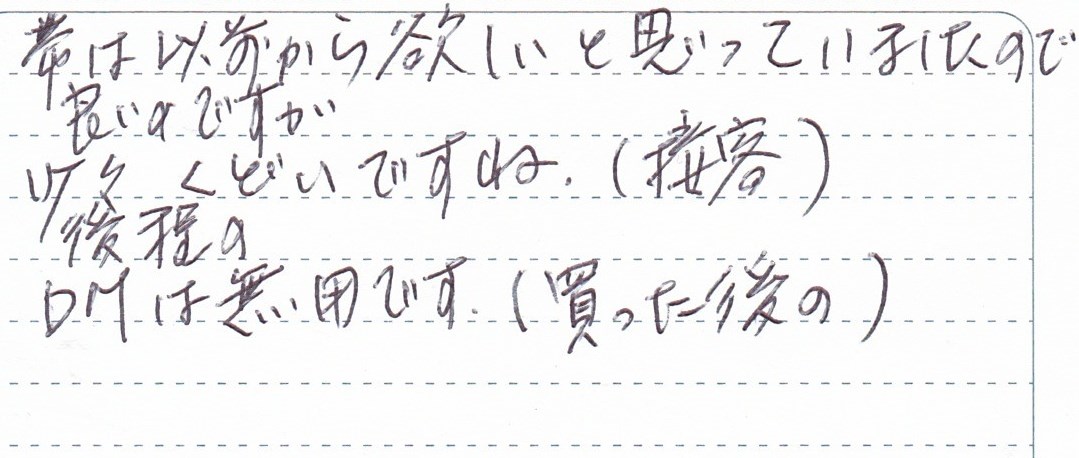 帯は以前から欲しいと思っていましたので
良いのですが
少々くどいですね.(接客)
後程の
DMは無用です.(買った後の)